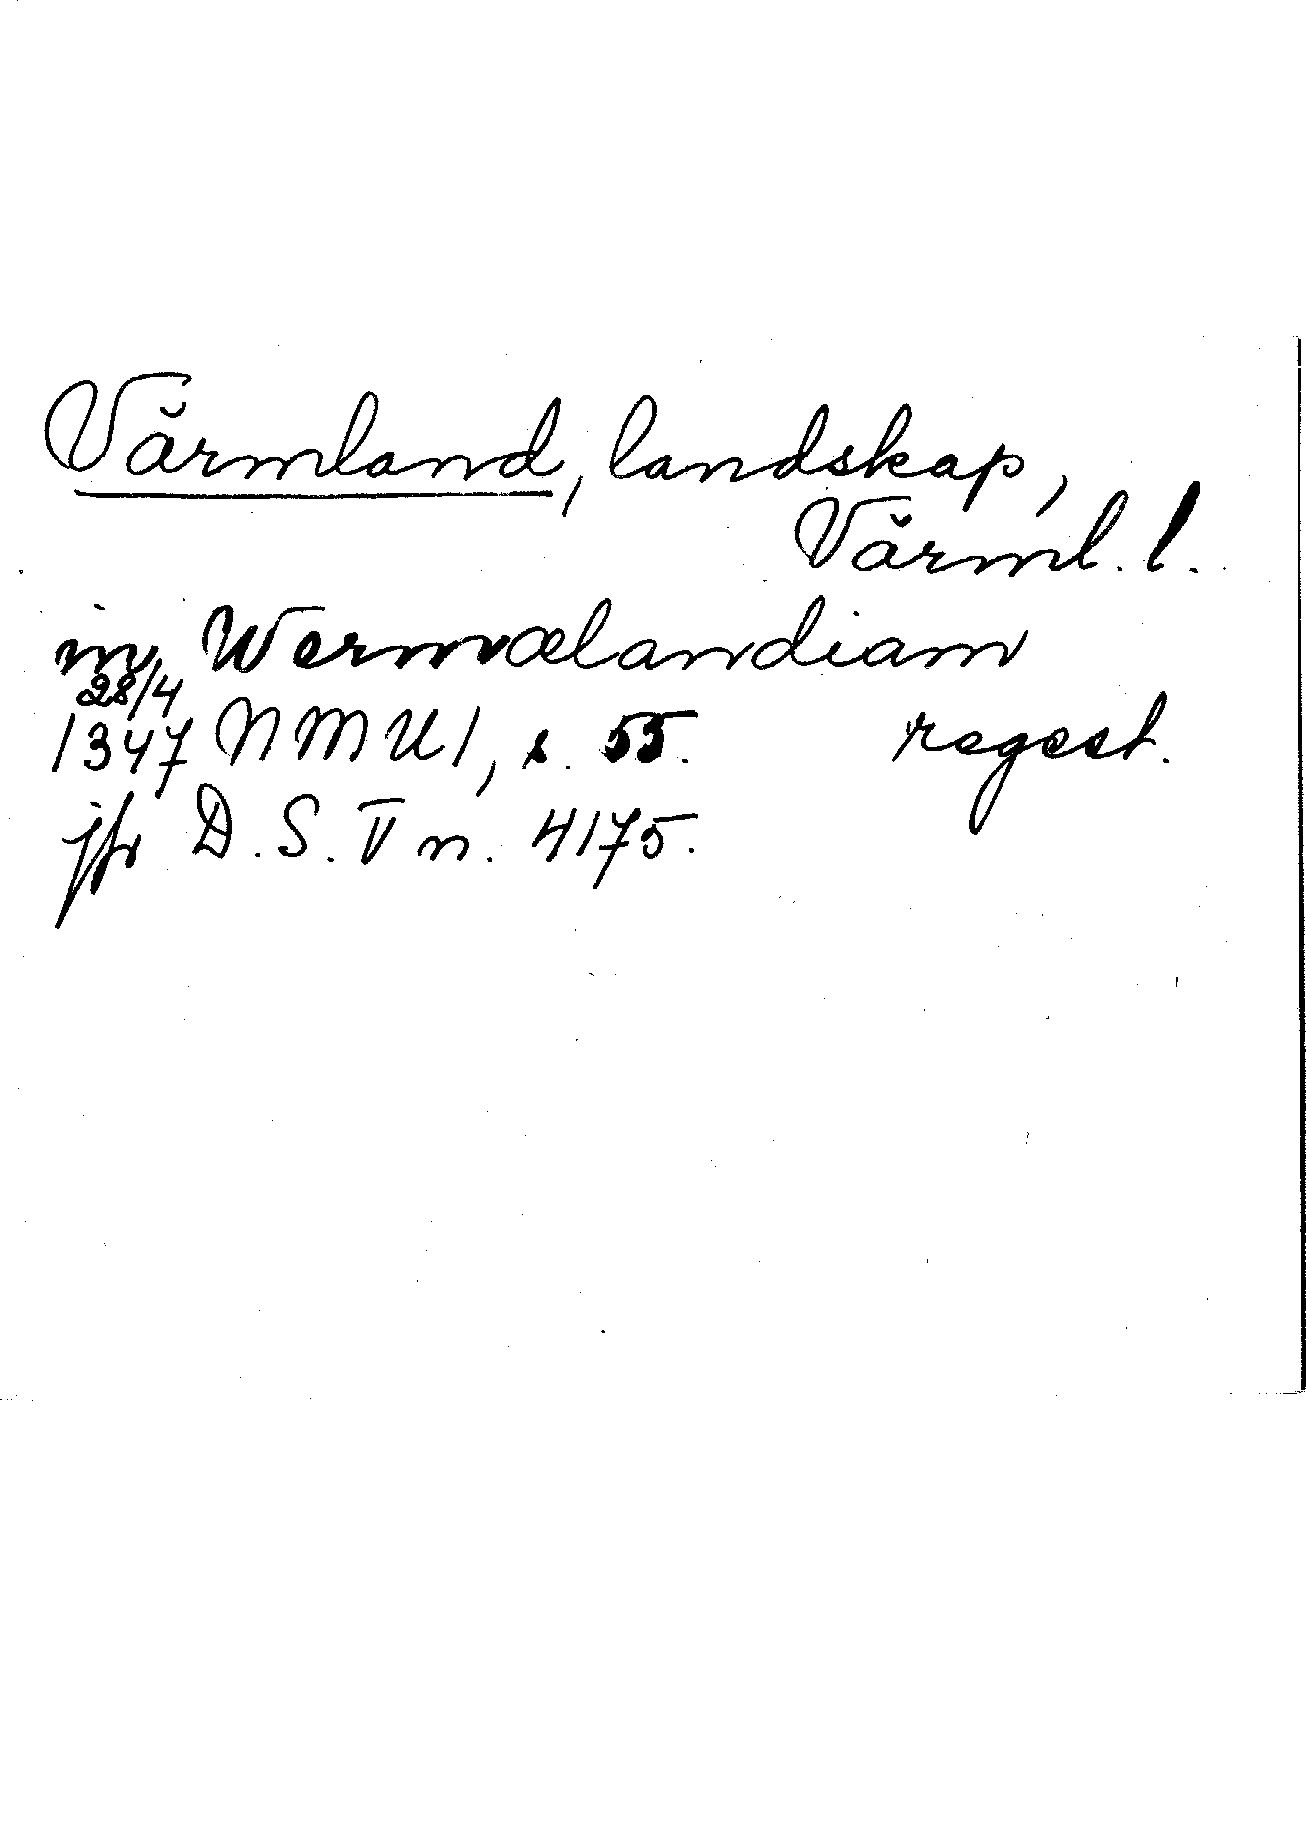 Värmland, landskap,
Värml. l.
in Wermælandiam
28/4
1347 NMU 1, s. 55. regest.
jfr D.S. V n. 4175.